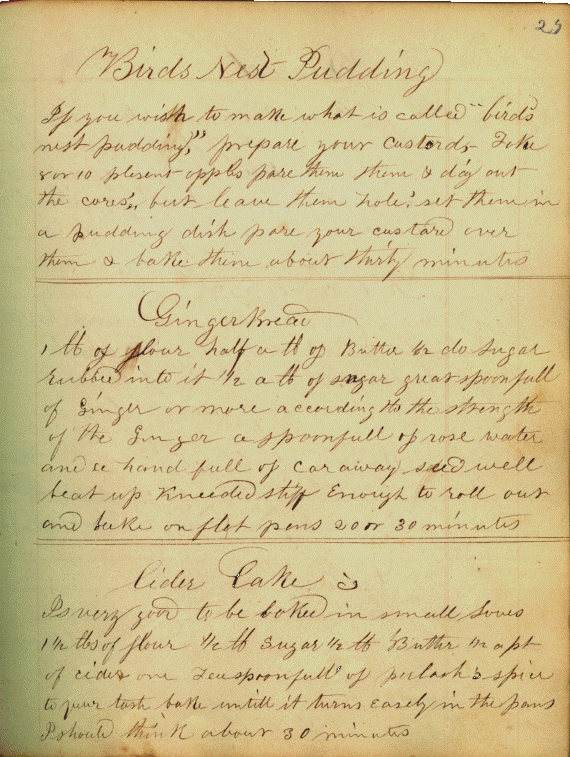 25
Birds Nest Pudding
If you wish to make what is called "birds
nest pudding," prepare your custard, Take
8 or 10 plesent appls pare them them & dig out
the cores, but leave them hole, set them in
a pudding dish pare your custard over
them & bake thine about thirty minutes
Gingerbread
1 lb of flour half a lb of Butter 1/2 do Sugar
rubbed into it 1/2 a lb of sugar great spoonfull
of Ginger or more according to the strength
of the Ginger a spoonfull of rose water
and a hand full of caraway seed well
beat up Kneeded stiff Enough to roll out
and bake on flat pans 20 or 30 minutes
Cider Cake
Is very good to be baked in small loves
1 1/2 lbs of flour 1/2 lb Sugar 1/2 lb Butter 1/2 a pt
of cider one Teaspoonfull of perlash & spice
to your tast bake untill it turns easely in the pans
I should think about 30 minutes